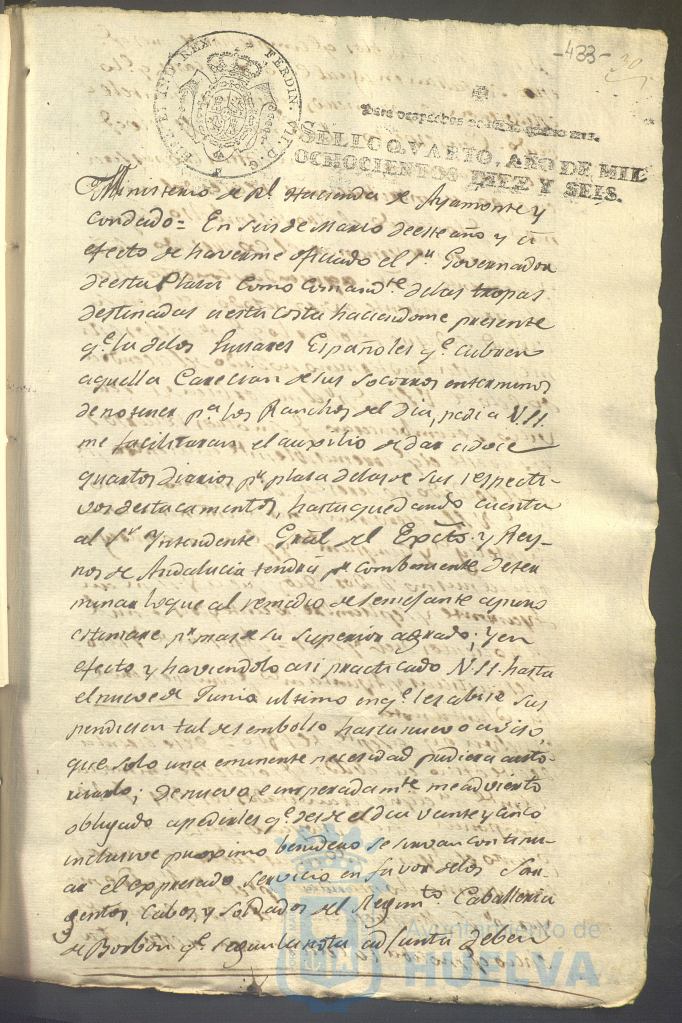 -433-
30
FERDIN. VII. D. G. HISP. ET IND. REX
Para despachos de oficio quatro mrs.
SELLO QVARTO, AÑO DE MIL
OCHOCIENTOS DIEZ Y SEIS.
Ministerio de Rl. Hacienda de Ayamonte y
Condado = En seis de Marzo de este año y á
efecto de haverme oficiado el Sr. Governador
de esta Plaza como comandte. delas tropas
destinadas a esta costa haciendome presente
qe. la delos Husares Españoles qe. cubren
aquella Carecian de sus socorros en terminos
de no tener pa. los Ranchos del dia, pedi a V.SS.
me facilitaran el auxilio de dar a doce
quartos diarios pr. plaza delas de sus respecti-
vos destacamentos, hasta que dando cuenta
al Sr. Yntendente Gral. del Excto. y Rey-
nos de Andalucia tendria pr. combeniente deter
minar loque al remedio de semejante apuro
estimare pr. mas de su superior agrado; y en
efecto y haviendolo asi practicado V.SS. hasta
el nueve de Junio ultimo en qe. les abise sus
pendiesen tal desembolso hasta nuevo aviso,
que solo una eminente necesidad pudiera auto
rizarlo; de nuevo e inesperadamte. me advierto
obligado a pedirles qe. desde el dia veinte y cinco
inclusive proximo benidero se sirvan continu-
ar el expresado servicio en favor delos Sar-
gentos, Cabos, y Soldados del Regimto. Caballeria
de Borbon qe. segun la nota adjunta deben
Ayuntamiento de
HUELVA